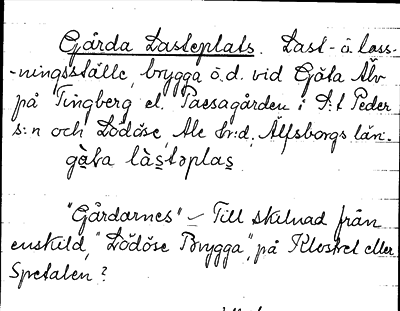 Gårda Lasteplats. Last- å loss-
-ningsställe, brygga o.d. vid Göta Älv
på Tingberg el. Paesagården i S:t Peder
s:n och Lödöse, Ale hr:d, Älfsborgs län.
gàta làstəplas
"Gårdarnes" – Till skilnad från
enskild, "Lödöse Brygga", på Klostret eller
Spetalen?